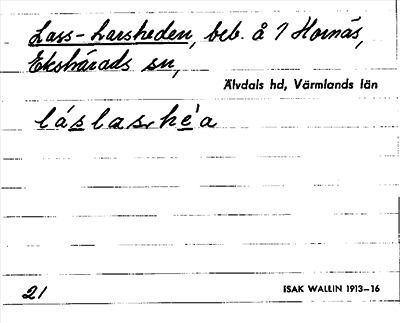 Lass-Larsheden, beb. å 7 Hornäs,
Ekshärads sn,
Älvdals hd, Värmlands län
láslaskèa
21 ISAK WALLIN 1913–16